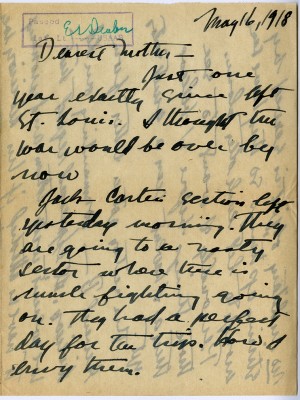 May 16, 1918
Passed
Dearest Mother –
Just one
year exactly since left
St. Louis. I thought the
war would be over by
now
Jack Carter section left
yesterday morning. They
are going to a nasty
sector where there is
much fighting going
on. They had a perfect
day for the trip. How I
envy them.